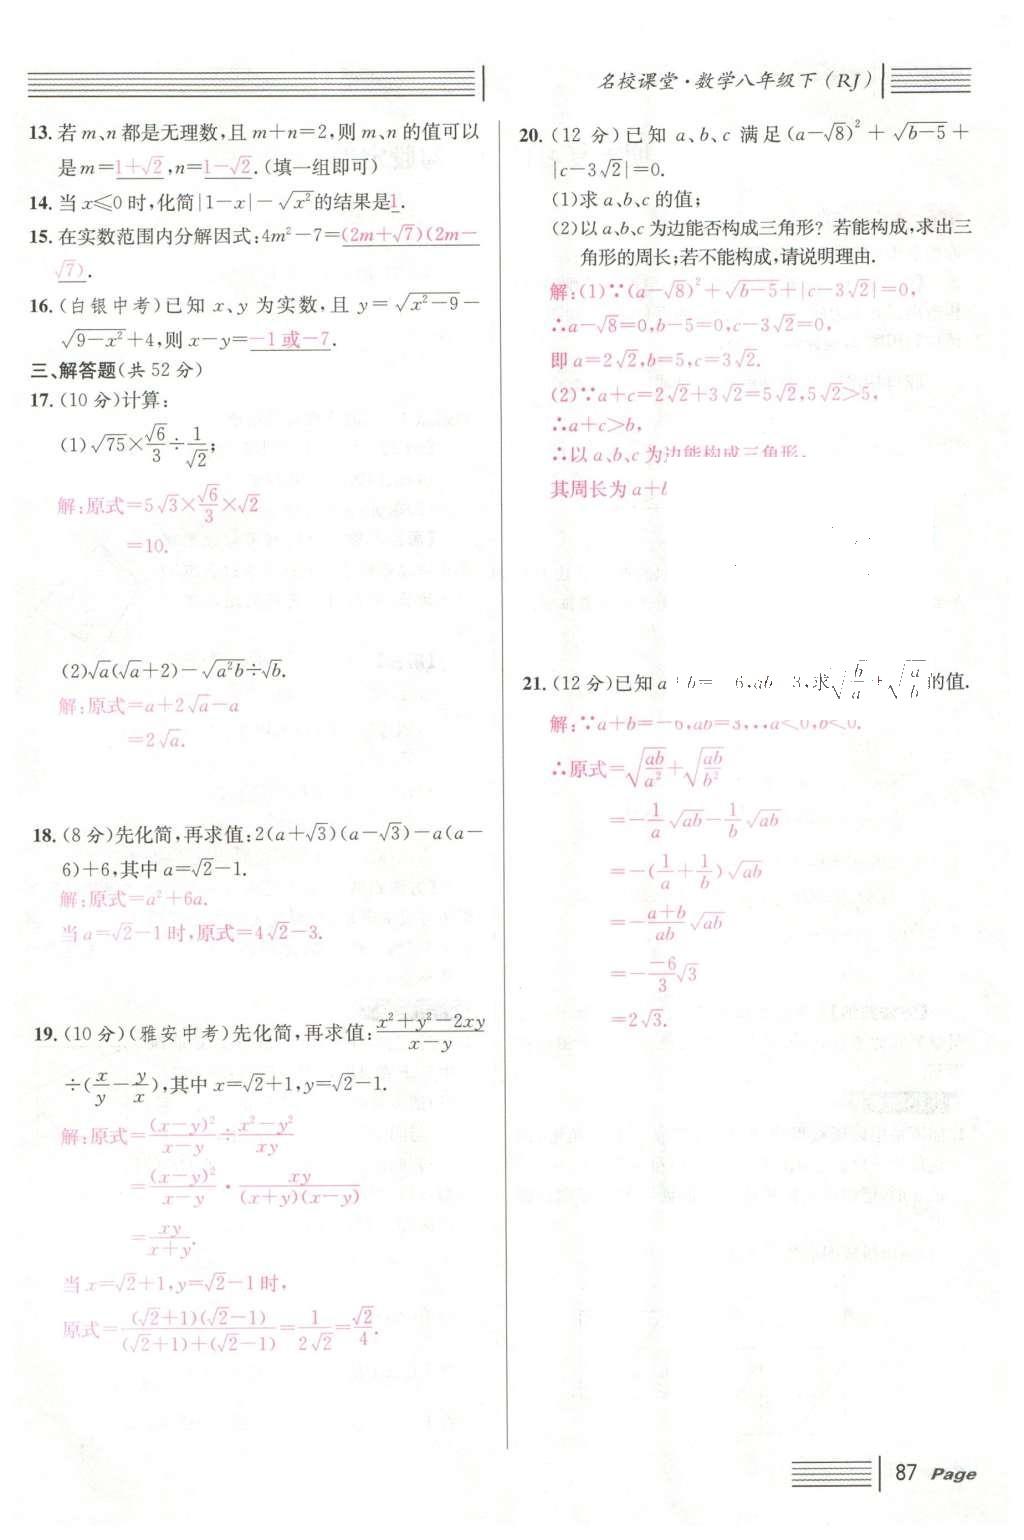 名校课堂·数学八年级下(RJ)
13. 若 m、n 都是无理数,且 m+n=2,则 m、n 的值可以
是 m=1+√2,n=1-√2.(填一组即可)
14. 当 x≤0 时,化简|1-x|-√(x²)的结果是1.
15. 在实数范围内分解因式:4m²-7=(2m+√7)(2m-
√7).
16. (白银中考)已知 x、y 为实数,且 y=√(x²-9)-
√(9-x²)+4,则 x-y=-1或-7.
三、解答题(共 52 分)
17. (10 分)计算:
(1)√75×√6/3÷1/√2;
解:原式=5√3×√6/3×√2
=10.
(2)√a(√a+2)-√(a²b)÷√b.
解:原式=a+2√a-a
=2√a.
18. (8 分)先化简,再求值:2(a+√3)(a-√3)-a(a-
6)+6,其中 a=√2-1.
解:原式=a²+6a.
当 a=√2-1 时,原式=4√2-3.
19. (10 分)(雅安中考)先化简,再求值:(x²+y²-2xy)/(x-y)
÷(x/y-y/x),其中 x=√2+1,y=√2-1.
解:原式=(x-y)²/(x-y)÷(x²-y²)/(xy)
=(x-y)²/(x-y)·xy/((x+y)(x-y))
=xy/(x+y).
当 x=√2+1,y=√2-1 时,
原式=((√2+1)(√2-1))/((√2+1)+(√2-1))=1/(2√2)=√2/4.
20. (12 分)已知 a、b、c 满足(a-√8)²+√(b-5)+
|c-3√2|=0.
(1)求 a、b、c 的值;
(2)以 a、b、c 为边能否构成三角形?若能构成,求出三
角形的周长;若不能构成,请说明理由.
解:(1)∵(a-√8)²+√(b-5)+|c-3√2|=0,
∴a-√8=0,b-5=0,c-3√2=0,
即 a=2√2,b=5,c=3√2.
(2)∵a+c=2√2+3√2=5√2,5√2>5,
∴a+c>b,
∴以 a、b、c 为边能构成三角形.
其周长为 a+b
21. (12 分)已知 a+b=-6,ab=3,求√(b/a)+√(a/b)的值.
解:∵a+b=-6,ab=3,∴a<0,b<0.
∴原式=√(ab/a²)+√(ab/b²)
=-1/a√(ab)-1/b√(ab)
=-(1/a+1/b)√(ab)
=-(a+b)/(ab)√(ab)
=-(-6)/3√3
=2√3.
87 Page